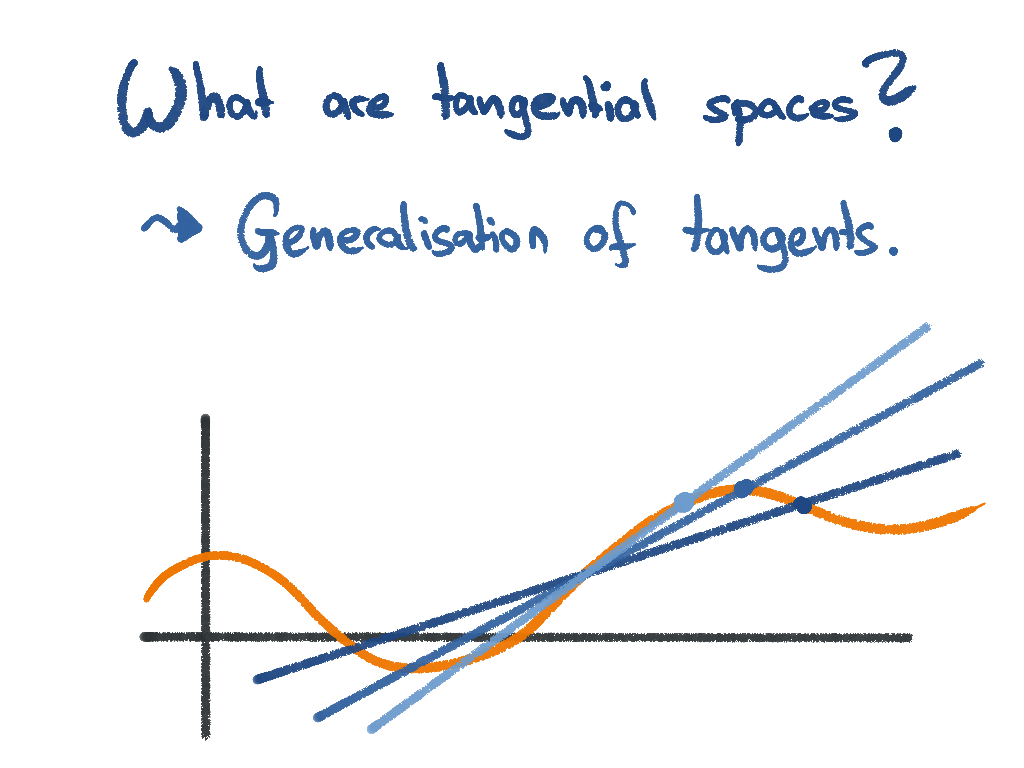 What are tangential spaces?
Generalisation of tangents.